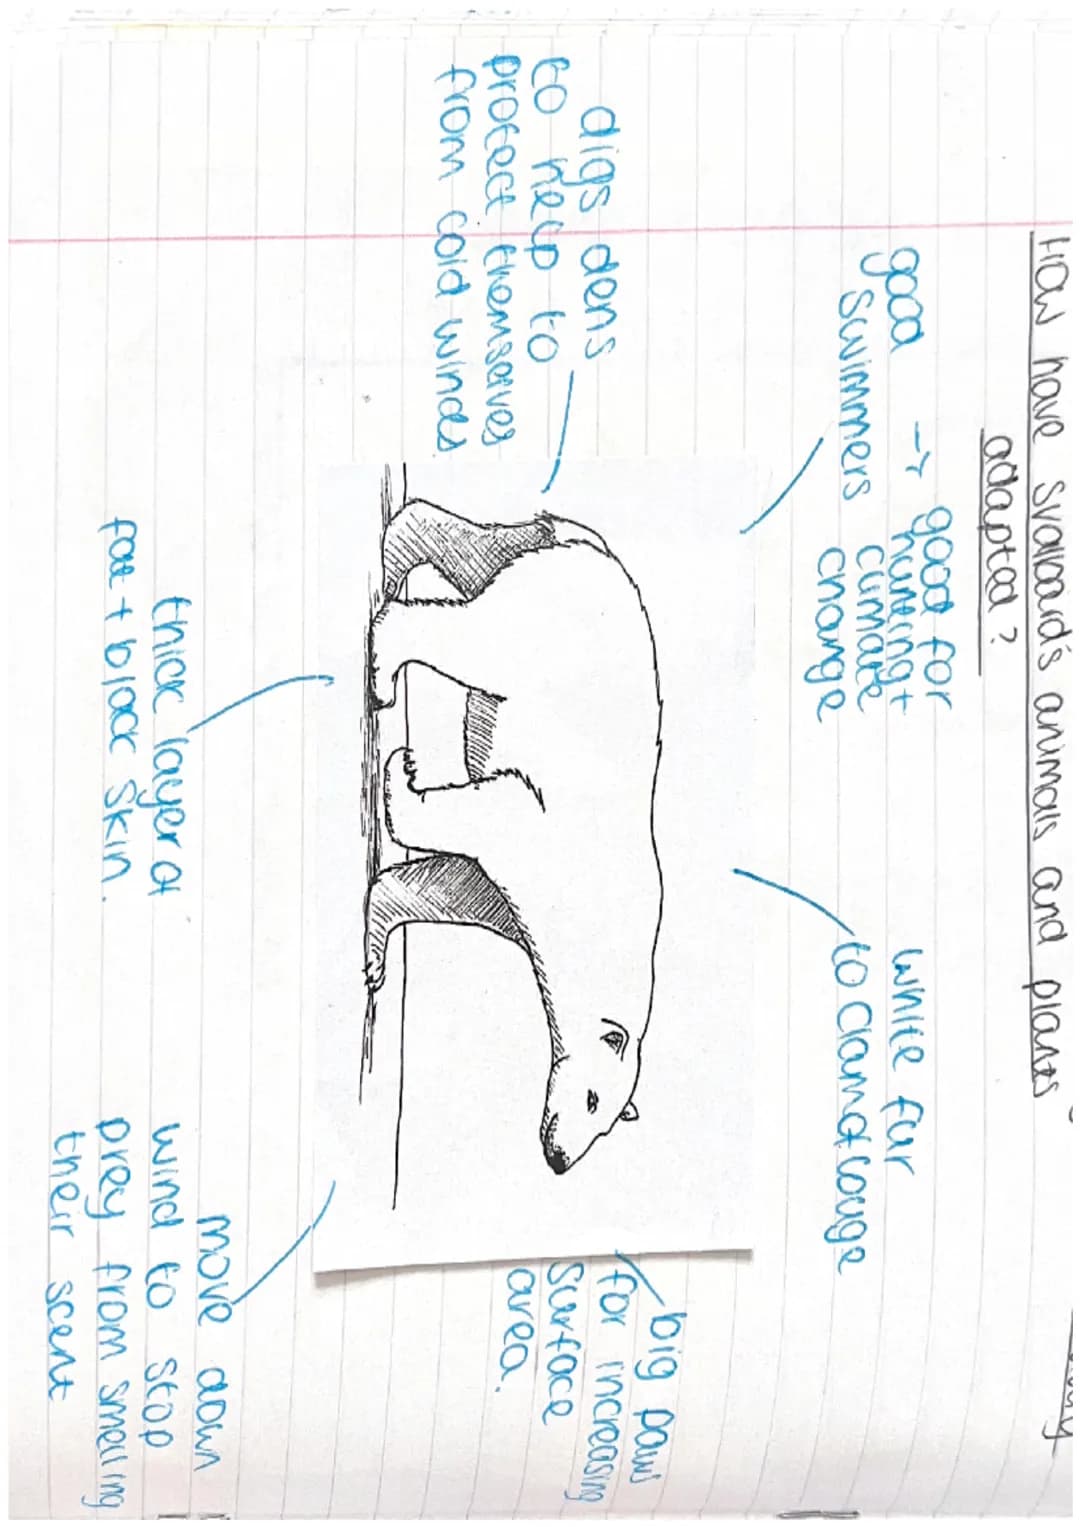 How have svalbard's animals and plants
adapted?
good → good for
swimmers hunting +
climate
change
white fur
to clamoflouge
digs dens
to help to
protect themselves
from cold winds
big paws
for increasing
surface
area.
thick layer of
fat + black skin.
move down
wind to stop
prey from smelling
their scent